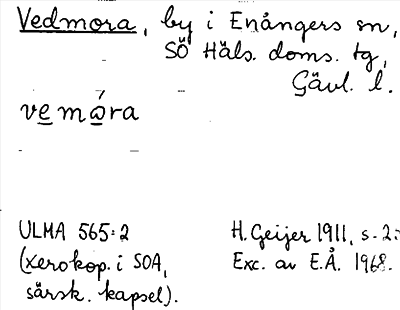 Vedmora, by i Enångers sn,
SÖ Häls. doms. tg,
Gävl. l.
vemåra
ULMA 565:2 H. Geijer 1911, s. 2.
(xerokop. i SOA, Exc. av E.Å. 1968.
särsk. kapsel).